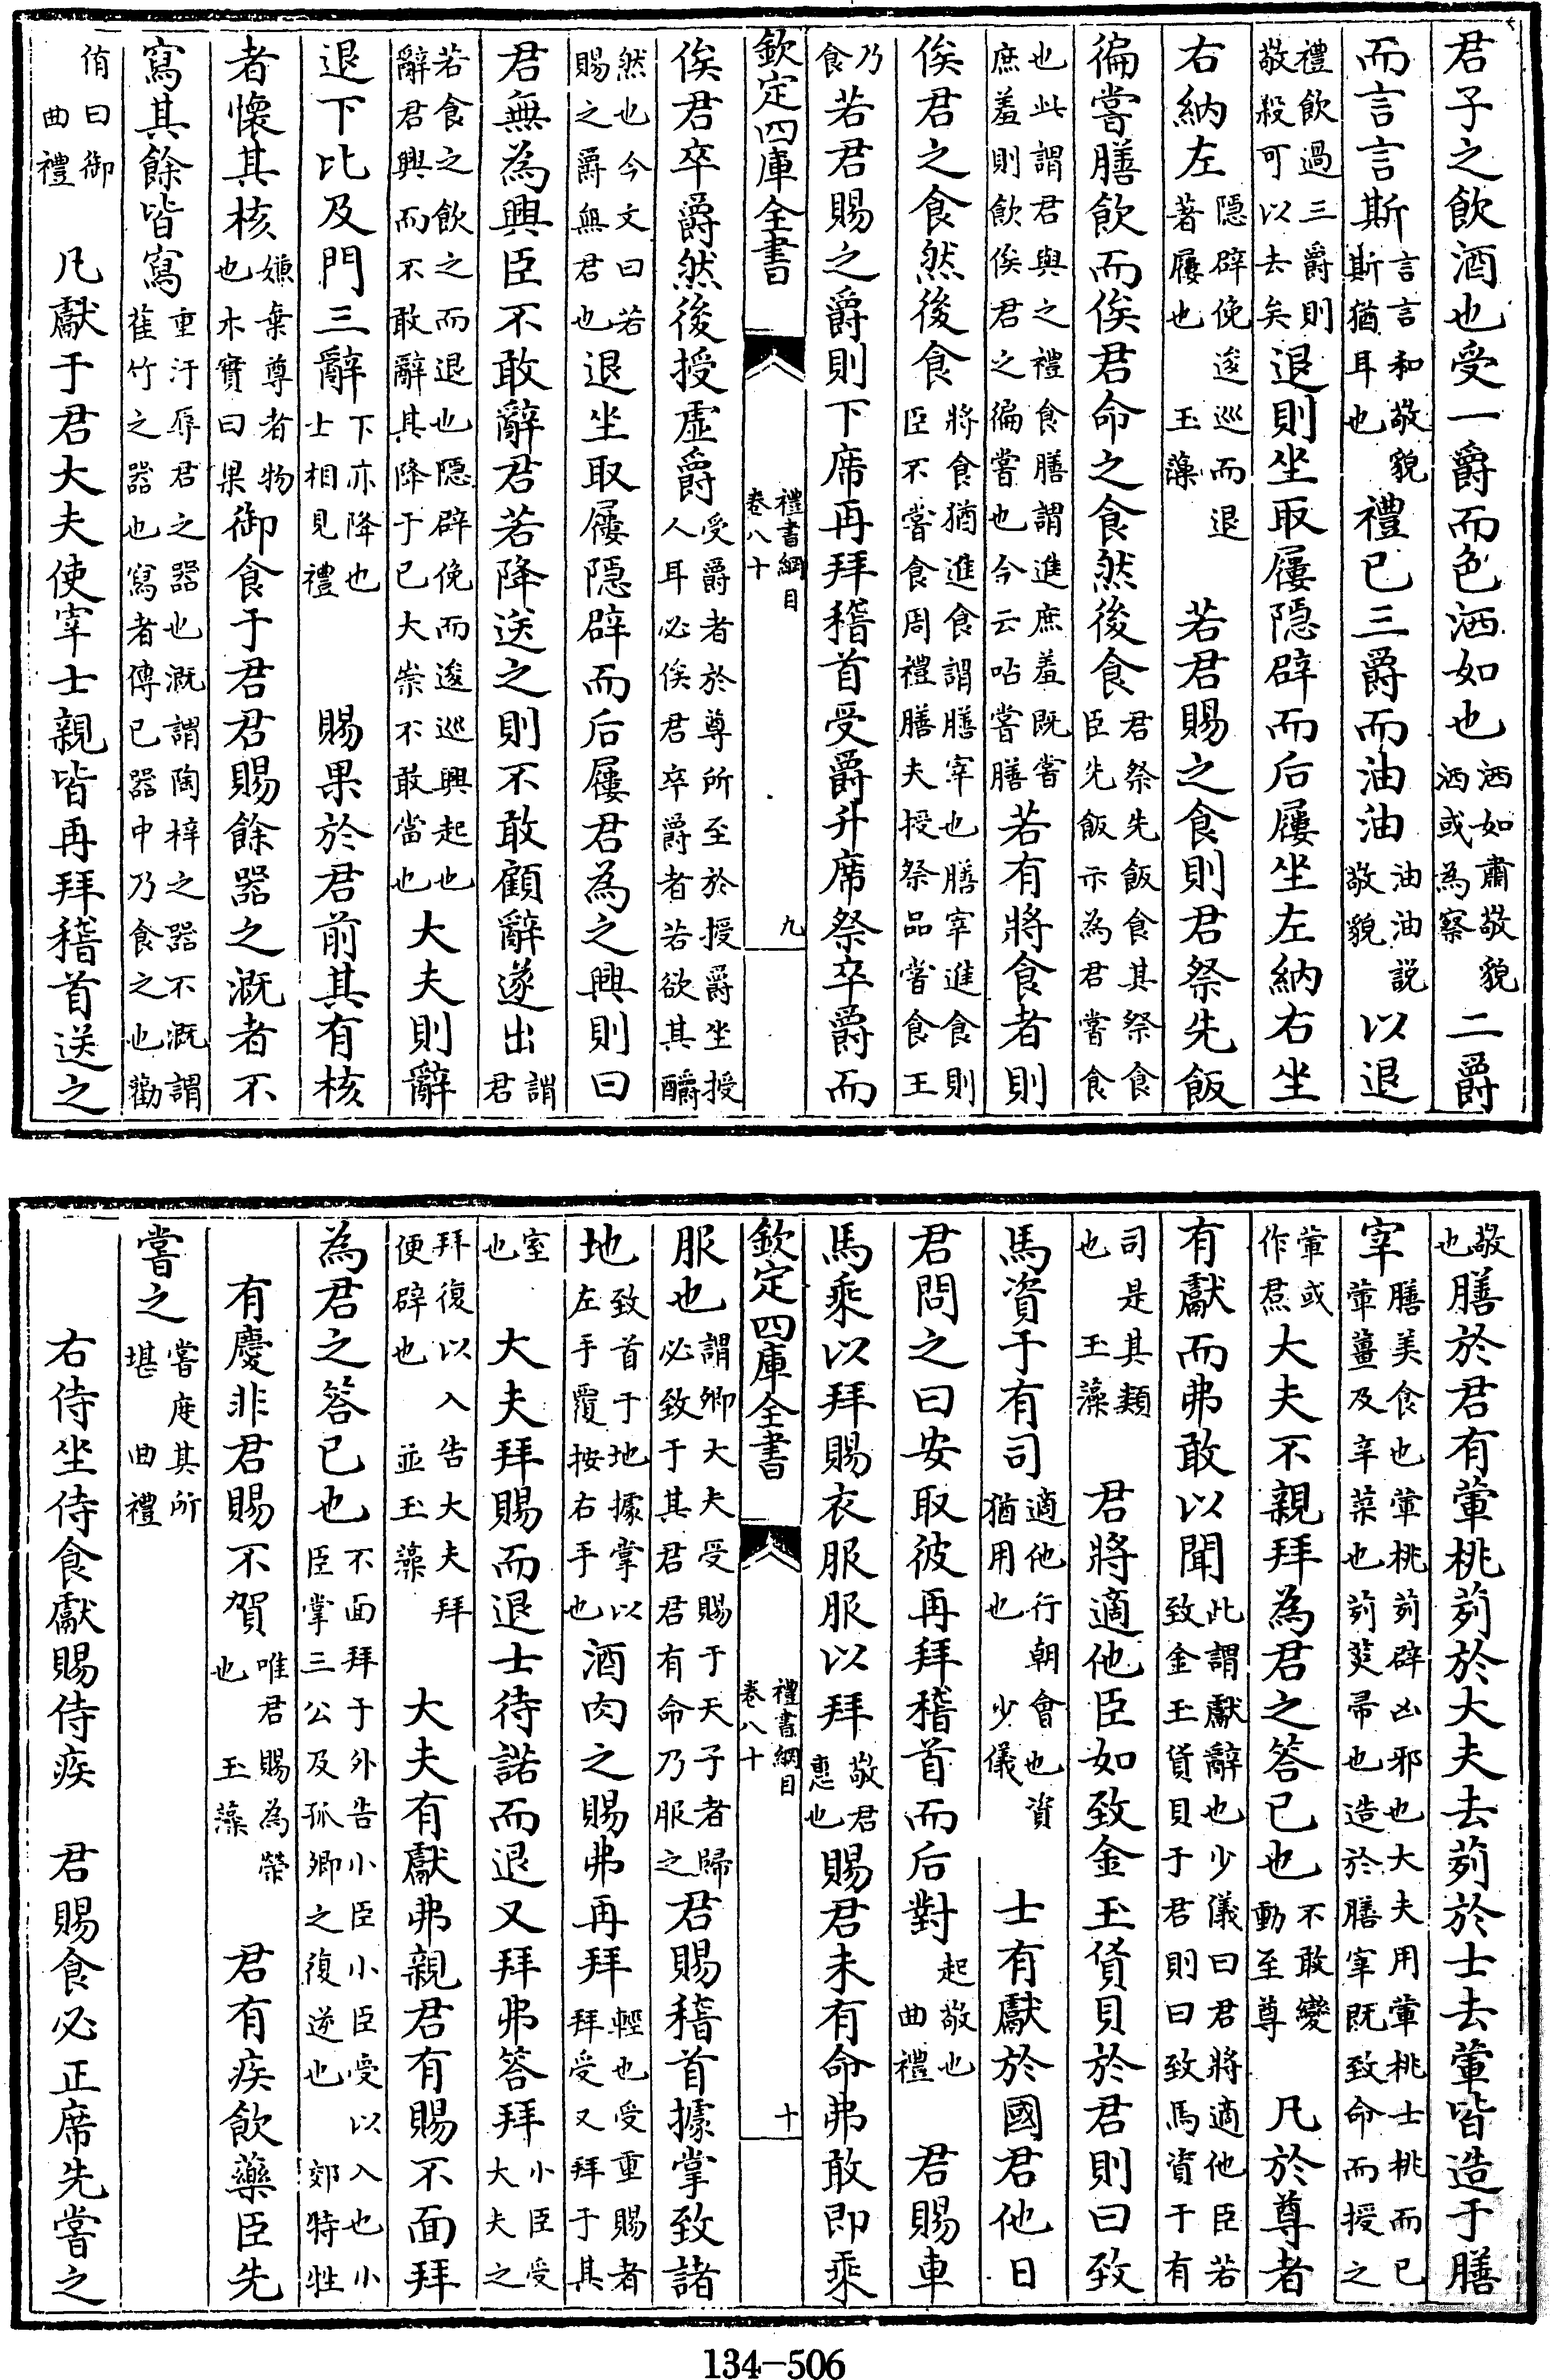 君子之飲酒也受一爵而色洒如也洒如肅敬貌洒或為察二爵
而言言斯言言和敬貌斯猶耳也禮已三爵而油油油油説敬貌以退
禮飲過三爵則敬殺可以去矣退則坐取屨隠辟而后屨坐左納右坐
右納左隠辟俛逡巡而退著屨也玉藻若君賜之食則君祭先飯
徧嘗膳飲而俟君命之食然後食君祭先飯食其祭食臣先飯示為君嘗食
也此謂君與之禮食膳謂進庶羞既嘗庶羞則飲俟君之徧嘗也今云呫嘗膳若有將食者則
俟君之食然後食將食猶進食謂膳宰也膳宰進食則臣不嘗食周禮膳夫授祭品嘗食王
乃食若君賜之爵則下席再拜稽首受爵升席祭卒爵而
欽定四庫全書 禮書綱目 卷八十 九
俟君卒爵然後授虛爵受爵者於尊所至於授爵坐授人耳必俟君卒爵者若欲其釂
然也今文曰若賜之爵無君也退坐取屨隠辟而后屨君為之興則曰
君無為興臣不敢辭君若降送之則不敢顧辭遂出謂君
若食之飲之而退也隠辟俛而逡巡興起也辭君興而不敢辭其降于已大崇不敢當也大夫則辭
退下比及門三辭下亦降也士相見禮賜果於君前其有核
者懷其核嫌棄尊者物也木實曰果御食于君君賜餘器之溉者不
寫其餘皆寫重汙辱君之器也溉謂陶梓之器不溉謂萑竹之器也寫者傳已器中乃食之也勸
侑曰御曲禮凡獻于君大夫使宰士親皆再拜稽首送之
敬也膳於君有葷桃茢於大夫去茢於士去葷皆造于膳
宰膳美食也葷桃茢辟凶邪也大夫用葷桃士桃而已葷薑及辛菜也茢菼帚也造於膳宰既致命而授之
葷或作焄大夫不親拜為君之答已也不敢變動至尊凡於尊者
有獻而弗敢以聞此謂獻辭也少儀曰君將適他臣若致金玉貨貝于君則曰致馬資于有
司是其類也玉藻君將適他臣如致金玉貨貝於君則曰致
馬資于有司適他行朝會也資猶用也少儀士有獻於國君他日
君問之曰安取彼再拜稽首而后對起敬也曲禮君賜車
馬乘以拜賜衣服服以拜敬君惠也賜君未有命弗敢即乘
欽定四庫全書 禮書綱目 卷八十 十
服也謂卿大夫受賜于天子者歸必致于其君君有命乃服之君賜稽首據掌致諸
地致首于地據掌以左手覆按右手也酒肉之賜弗再拜輕也受重賜者拜受又拜于其
室也大夫拜賜而退士待諾而退又拜弗答拜小臣受大夫之
拜復以入告大夫拜便辟也並玉藻大夫有獻弗親君有賜不面拜
為君之答已也不面拜于外告小臣小臣受以入也小臣掌三公及孤卿之復逆也郊特牲
有慶非君賜不賀唯君賜為榮也玉藻君有疾飲藥臣先
嘗之嘗度其所堪曲禮
右侍坐侍食獻賜侍疾君賜食必正席先嘗之
134-506